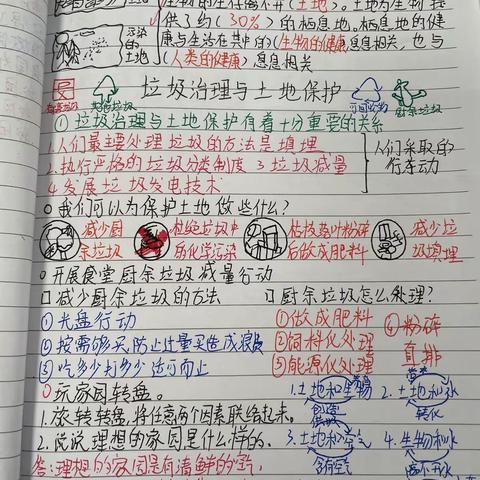 供了约(30%)的栖息地。栖息地的健
康与生活在其中的(生物的健康)息息相关,也与
污染的土地
(人类的健康)息息相关
垃圾治理与土地保护
厨余垃圾
①垃圾治理与土地保护有着十分重要的关系
1.人们最主要处理垃圾的方法是填埋
2.执行严格的垃圾分类制度 3.垃圾减量
4.发展垃圾发电技术
人们采取的行动
○我们可以为保护土地做些什么?
减少厨余垃圾
杜绝垃圾中的化学污染
枯枝落叶粉碎后做成肥料
减少垃圾填埋
○开展食堂厨余垃圾减量行动
□减少厨余垃圾的方法 □厨余垃圾怎么处理?
①光盘行动
②按需够买,防止过量买造成浪费
③吃多少打多少适可而止
①做成肥料
②饲料化处理
③能源化处理
④粉碎直排
○玩家园转盘。
1.旋转转盘,将任意两个因素联结起来。
2.说说理想的家园是什么样的。
答:理想的家园是有清鲜的空气,
1.土地和生物
2.土地和水
转化
3.土地和空气
含有空气
4.生物和水
离不开水